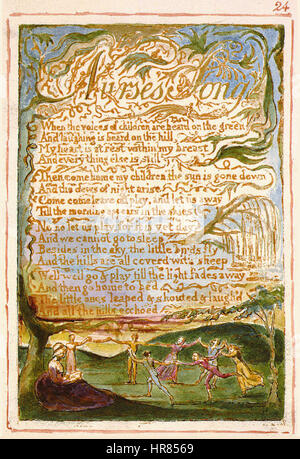 24
Nurse's Song
When the voices of children are heard on the green
And laughing is heard on the hill,
My heart is at rest within my breast
And every thing else is still
Then come home my children the sun is gone down
And the dews of night arise
Come come leave off play, and let us away
Till the morning appears in the skies
No no let us play, for it is yet day
And we cannot go to sleep
Besides in the sky, the little birds fly
And the hills are all coverd with sheep
Well well go & play till the light fades away
And then go home to bed
The little ones leaped & shouted & laugh'd
And all the hills ecchoed
alamy
Image ID: HR8569
www.alamy.com